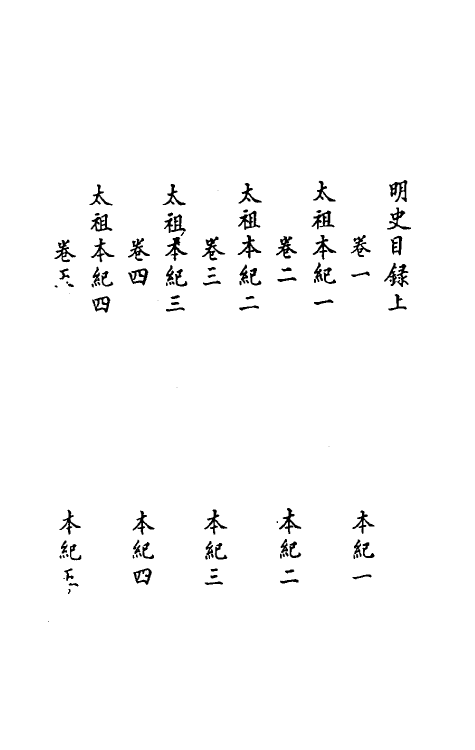 明史目録上
卷一 本紀一
太祖本紀一
卷二 本紀二
太祖本紀二
卷三 本紀三
太祖本紀三
卷四 本紀四
太祖本紀四
卷 本紀